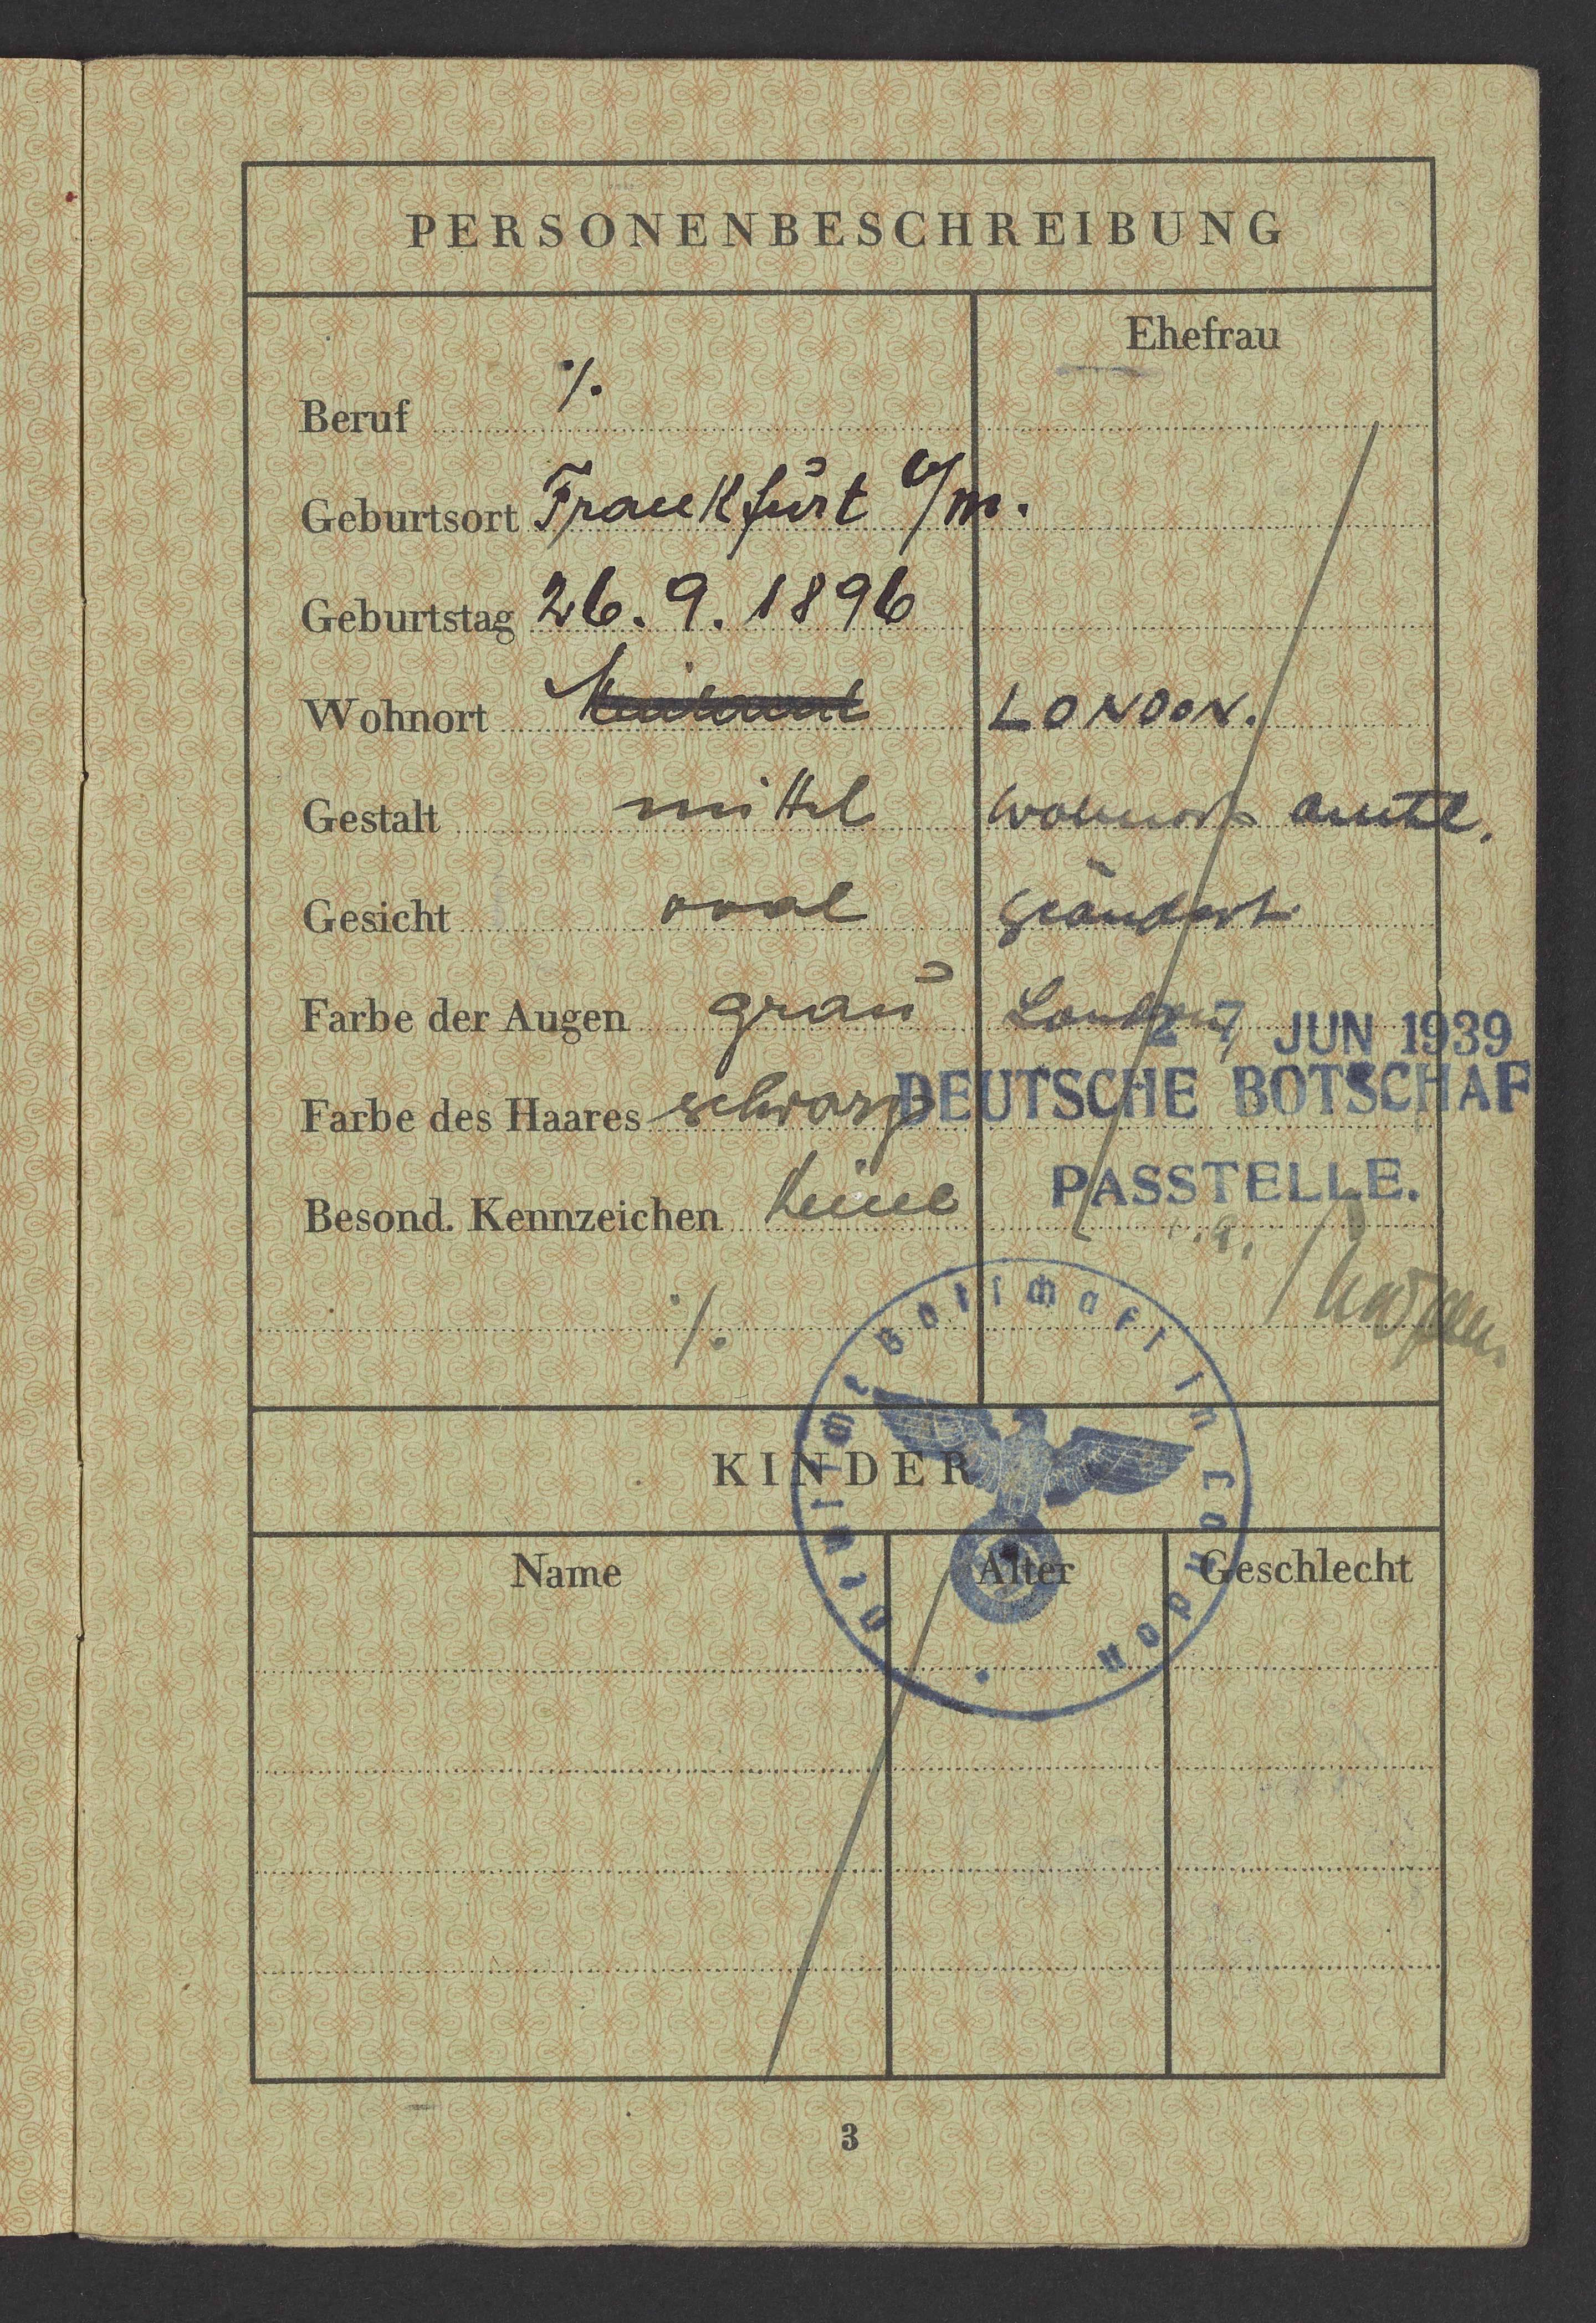 PERSONENBESCHREIBUNG
Ehefrau
Beruf ./.
Geburtsort Frankfurt a/m.
Geburtstag 26. 9. 1896
Wohnort LONDON.
Gestalt mittel Wohnort amtl.
Gesicht oval geändert.
Farbe der Augen grau London, 27 JUN 1939
Farbe des Haares schwarz DEUTSCHE BOTSCHAF
Besond. Kennzeichen keine PASSTELLE.
./.
Deutsche Botschaft in London
KINDER
Name Alter Geschlecht
3